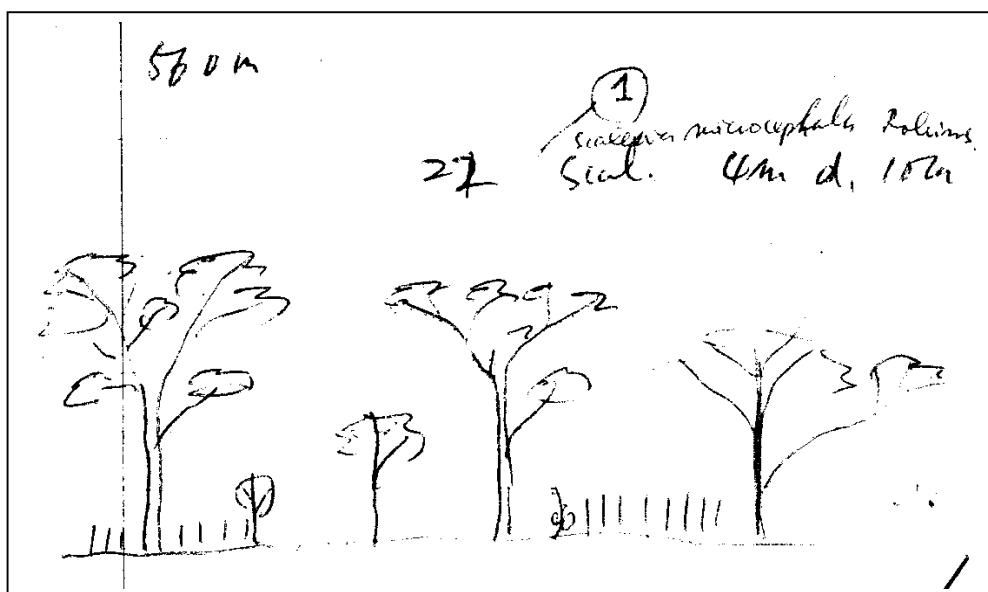 560 m
1
Scalesia microcephala Robins.
27 Scal. 4m d, 10m